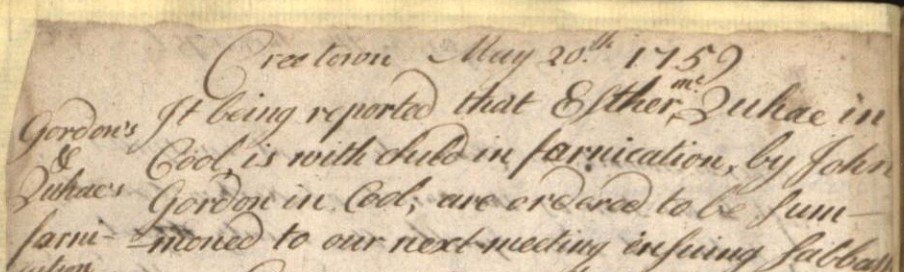 Creetown May 20.th 1759
Gordon's
&
Quhae's
farni-
cation
It being reported that Esther mc Quhae in
Cool, is with child in farnication, by John
Gordon in Cool; are ordered to be sum-
-moned to our next meeting ensuing Sabbath